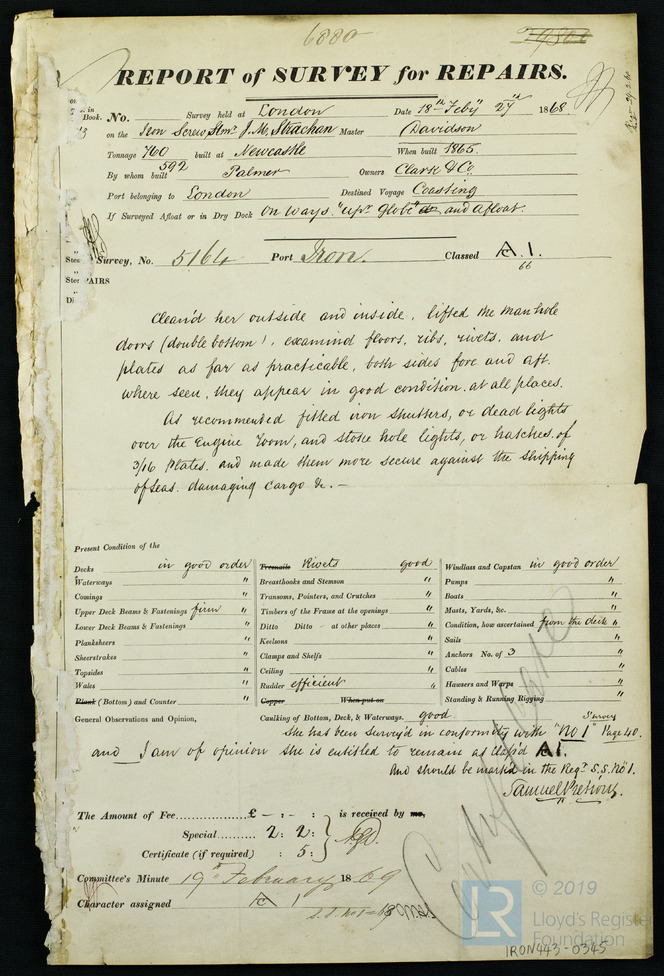 6880
REPORT of SURVEY for REPAIRS.
in Book. No. Survey held at London Date 18th Feby 27th 1868
on the Iron Screw Stmr J. M. Strachan Master Davidson
Tonnage 760 built at Newcastle When built 1865.
592
By whom built Palmer Owners Clark & Co
Port belonging to London Destined Voyage Coasting
If Surveyed Afloat or in Dry Dock On ways "upr Globe" and afloat.
Survey, No. 5164 Port Iron. Classed A.1.
66
PAIRS
Clean'd her outside and inside, lifted the manhole
doors (double bottom), examind floors, ribs, rivets, and
plates as far as practicable, both sides fore and aft.
where seen, they appear in good condition. at all places.
As recommended fitted iron shutters, or dead lights
over the Engine room, and stoke hole lights, or hatches. of
3/16 Plates. and made them more secure against the shipping
of seas. damaging cargo &c. —
Present Condition of the
Decks in good order Treenails Rivets good Windlass and Capstan in good order
Waterways " Breasthooks and Stemson " Pumps "
Comings " Transoms, Pointers, and Crutches " Boats "
Upper Deck Beams & Fastenings firm " Timbers of the Frame at the openings " Masts, Yards, &c. "
Lower Deck Beams & Fastenings " Ditto Ditto - at other places " Condition, how ascertained from the deck "
Planksheers " Keelsons " Sails "
Sheerstrakes " Clamps and Shelfs " Anchors No. of 3 "
Topsides " Ceiling " Cables "
Wales " Rudder efficient " Hawsers and Warps "
Plank (Bottom) and Counter " Copper When put on Standing & Running Rigging "
General Observations and Opinion, Caulking of Bottom, Deck, & Waterways. good
She has been survey'd in conformity with "No 1" Survey Page 40.
and I am of opinion she is entitled to remain as class'd A1.
And should be mark'd in the Regr S.S. No 1.
Samuel Pretious
The Amount of Fee £ - : - : is received by me,
Special 2 : 2 :
Certificate (if required) : 5 :
Committee's Minute 19th February 1869
Character assigned A 1
© 2019
LR
Lloyd's Register
Foundation
IRON443-0345